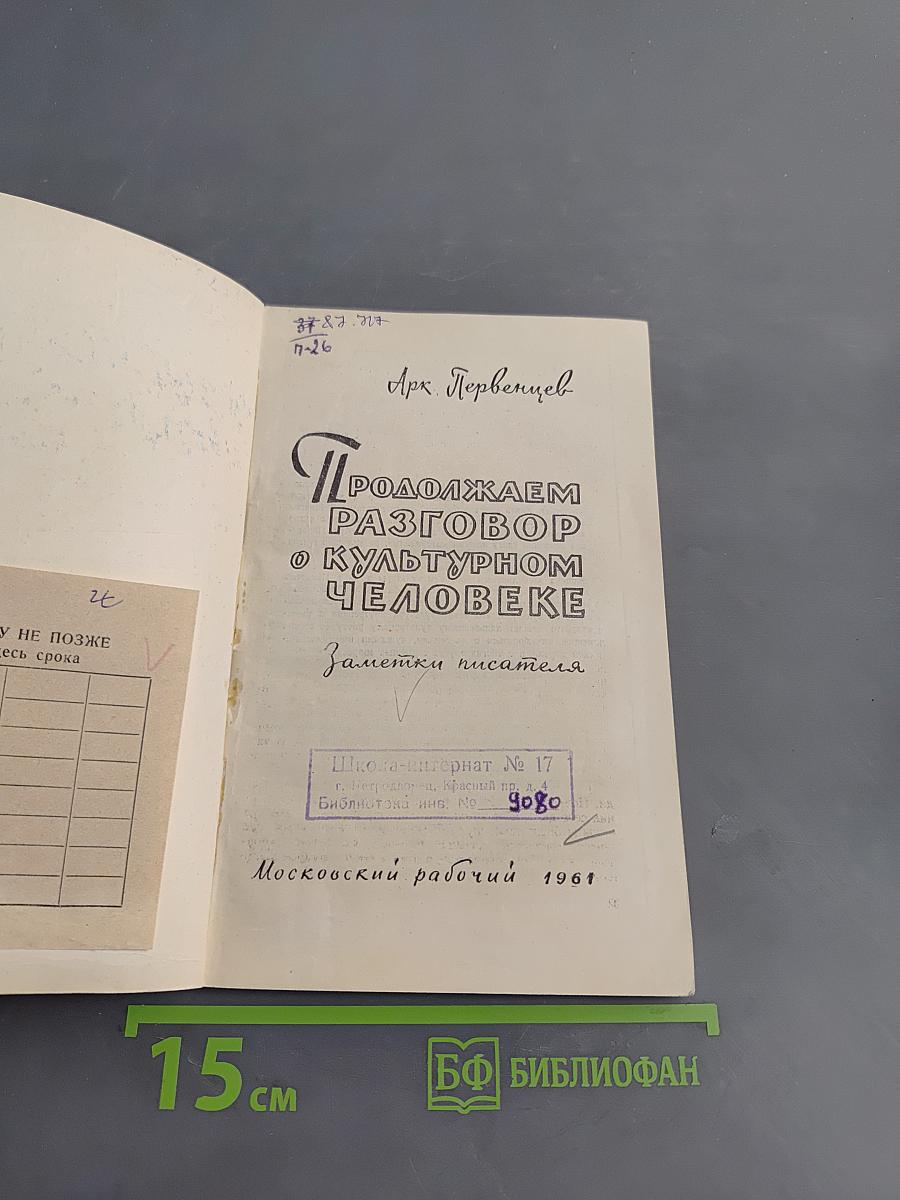 37 87.717
П-26
Арк. Первенцев
ПРОДОЛЖАЕМ
РАЗГОВОР
О КУЛЬТУРНОМ
ЧЕЛОВЕКЕ
Заметки писателя
Школа-интернат № 17
г. Петродворец, Красный пр. д. 4
Библиотека инв. № 9080
Московский рабочий 1961
У НЕ ПОЗЖЕ
десь срока
15 см
БФ БИБЛИОФАН